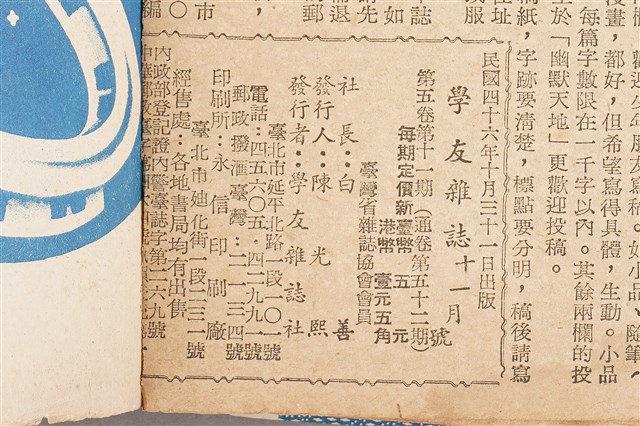 漫畫，都好，但希望寫得具體，生動。小品
每篇字數限在一千字以內。其餘兩欄的投
至於「幽默天地」更歡迎投稿。
稿紙，字跡要清楚，標點要分明，稿後請寫
民國四十六年十月三十一日出版
學友雜誌十一月號
第五卷第十一期（通卷第五十二期）
每期定價新臺幣五元
港幣壹元五角
臺灣省雜誌協會會員
社長：白善
發行人：陳光熙
發行者：學友雜誌社
臺北市延平北路一段一〇一號
電話：四五六〇五．四二九九一號
郵政撥滙臺灣：二一三四號
印刷所：永信印刷廠
臺北市廸化街一段二三一號
經售處：各地書局均有出售
內政部登記證內警臺誌字第二六九號